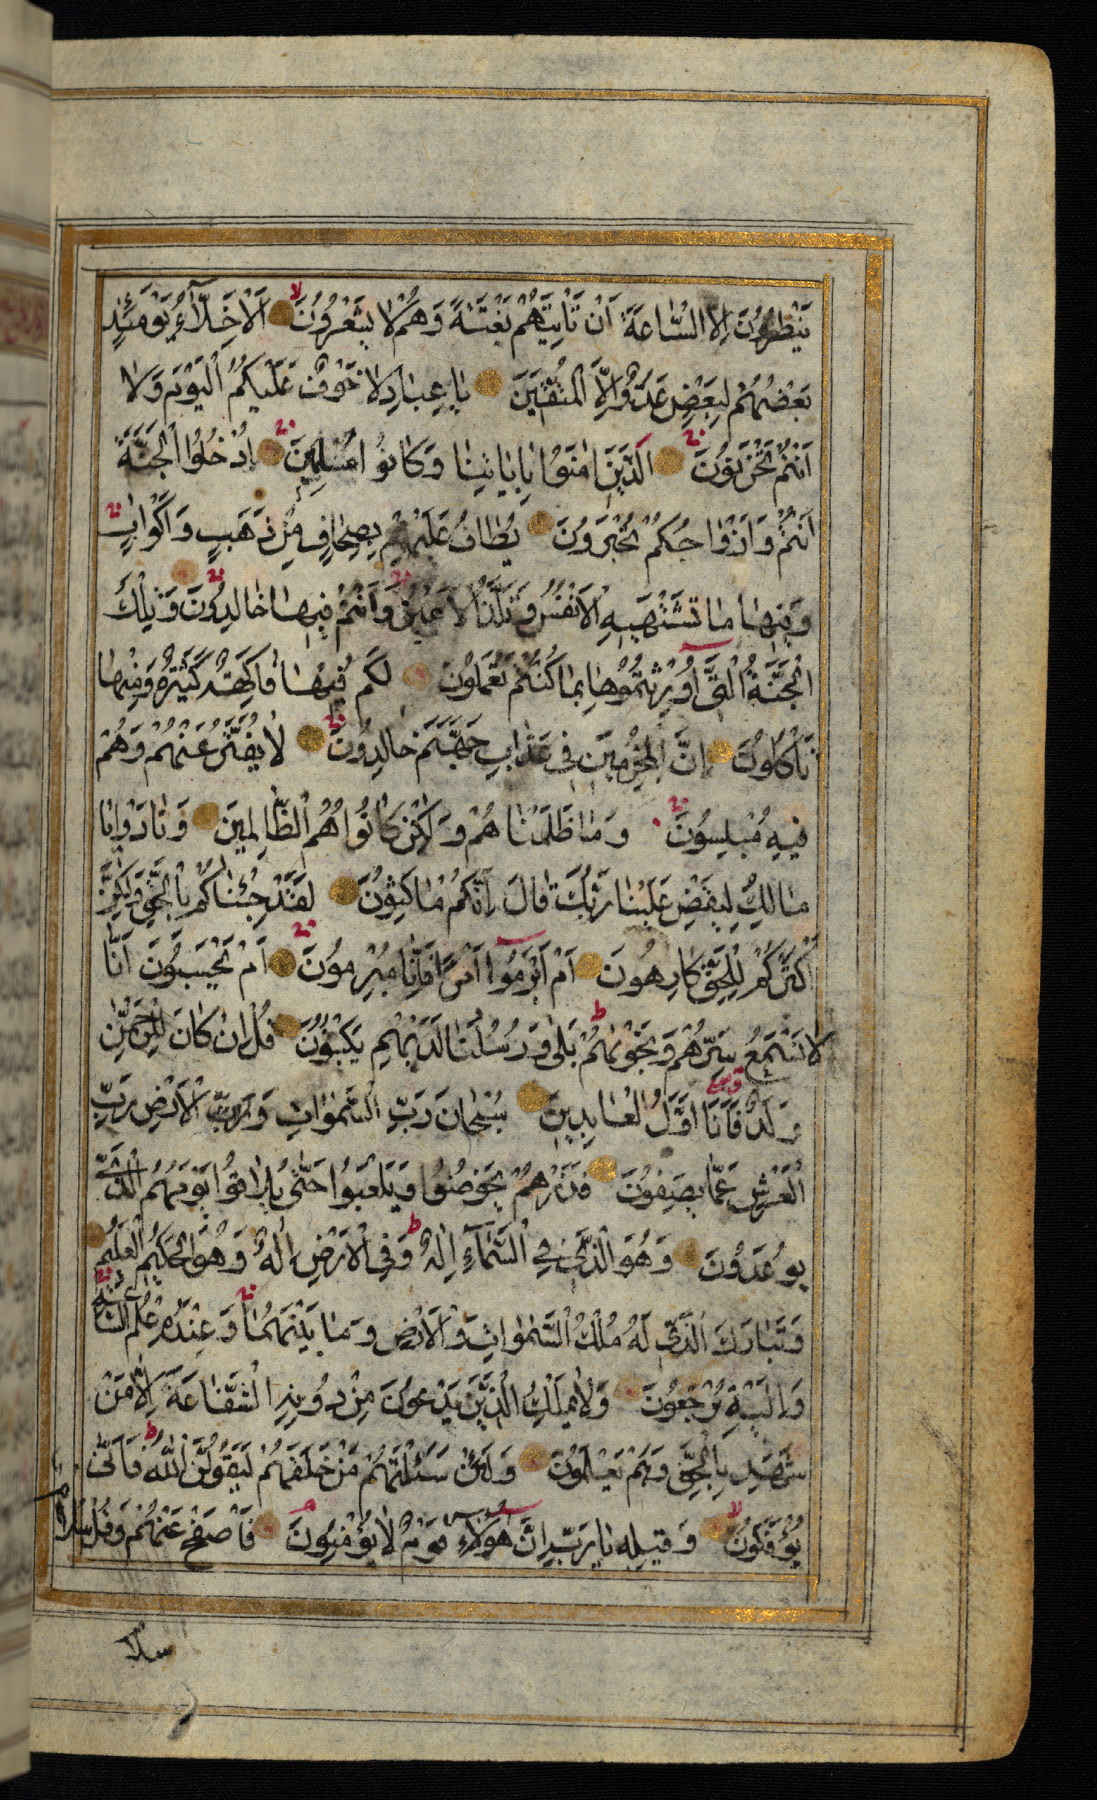 يَنْظُرُونَ اِلَّا السَّاعَةَ اَنْ تَأْتِيَهُمْ بَغْتَةً وَهُمْ لَا يَشْعُرُونَ اَلْاَخِلَّاءُ يَوْمَئِذٍ
بَعْضُهُمْ لِبَعْضٍ عَدُوٌّ اِلَّا الْمُتَّقِينَ يَا عِبَادِ لَا خَوْفٌ عَلَيْكُمُ الْيَوْمَ وَلَا
اَنْتُمْ تَحْزَنُونَ اَلَّذِينَ اٰمَنُوا بِاٰيَاتِنَا وَكَانُوا مُسْلِمِينَ اُدْخُلُوا الْجَنَّةَ
اَنْتُمْ وَاَزْوَاجُكُمْ تُحْبَرُونَ يُطَافُ عَلَيْهِمْ بِصِحَافٍ مِنْ ذَهَبٍ وَاَكْوَابٍ
وَفِيهَا مَا تَشْتَهِيهِ الْاَنْفُسُ وَتَلَذُّ الْاَعْيُنُ وَاَنْتُمْ فِيهَا خَالِدُونَ وَتِلْكَ
الْجَنَّةُ الَّتِي اُورِثْتُمُوهَا بِمَا كُنْتُمْ تَعْمَلُونَ لَكُمْ فِيهَا فَاكِهَةٌ كَثِيرَةٌ وَمِنْهَا
تَأْكُلُونَ اِنَّ الْمُجْرِمِينَ فِي عَذَابِ جَهَنَّمَ خَالِدُونَ لَا يُفَتَّرُ عَنْهُمْ وَهُمْ
فِيهِ مُبْلِسُونَ وَمَا ظَلَمْنَاهُمْ وَلٰكِنْ كَانُوا هُمُ الظَّالِمِينَ وَنَادَوْا يَا
مَالِكُ لِيَقْضِ عَلَيْنَا رَبُّكَ قَالَ اِنَّكُمْ مَاكِثُونَ لَقَدْ جِئْنَاكُمْ بِالْحَقِّ وَلٰكِنَّ
اَكْثَرَكُمْ لِلْحَقِّ كَارِهُونَ اَمْ اَبْرَمُوا اَمْرًا فَاِنَّا مُبْرِمُونَ اَمْ يَحْسَبُونَ اَنَّا
لَا نَسْمَعُ سِرَّهُمْ وَنَجْوٰيهُمْ بَلٰى وَرُسُلُنَا لَدَيْهِمْ يَكْتُبُونَ قُلْ اِنْ كَانَ لِلرَّحْمٰنِ
وَلَدٌ فَاَنَا اَوَّلُ الْعَابِدِينَ سُبْحَانَ رَبِّ السَّمٰوَاتِ وَرَبِّ الْاَرْضِ رَبِّ
الْعَرْشِ عَمَّا يَصِفُونَ فَذَرْهُمْ يَخُوضُوا وَيَلْعَبُوا حَتّٰى يُلَاقُوا يَوْمَهُمُ الَّذِي
يُوعَدُونَ وَهُوَ الَّذِي فِي السَّمَاءِ اِلٰهٌ وَفِي الْاَرْضِ اِلٰهٌ وَهُوَ الْحَكِيمُ الْعَلِيمُ
وَتَبَارَكَ الَّذِي لَهُ مُلْكُ السَّمٰوَاتِ وَالْاَرْضِ وَمَا بَيْنَهُمَا وَعِنْدَهُ عِلْمُ السَّاعَةِ
وَاِلَيْهِ تُرْجَعُونَ وَلَا يَمْلِكُ الَّذِينَ يَدْعُونَ مِنْ دُونِهِ الشَّفَاعَةَ اِلَّا مَنْ
شَهِدَ بِالْحَقِّ وَهُمْ يَعْلَمُونَ وَلَئِنْ سَئَلْتَهُمْ مَنْ خَلَقَهُمْ لَيَقُولُنَّ اللّٰهُ فَاَنّٰى
يُؤْفَكُونَ وَقِيلِهِ يَا رَبِّ اِنَّ هٰؤُلَاءِ قَوْمٌ لَا يُؤْمِنُونَ فَاصْفَحْ عَنْهُمْ وَقُلْ سَلَامٌ